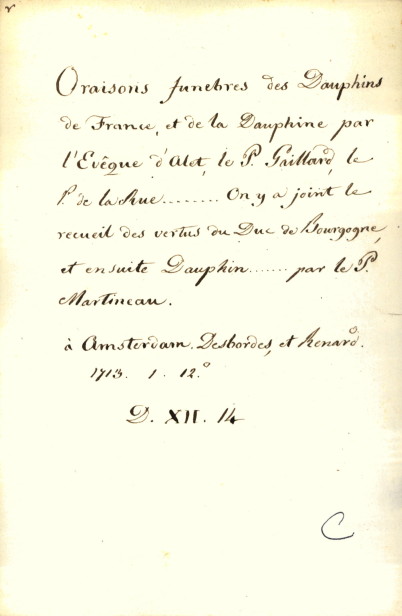 Oraisons funebres des Dauphins
de France, et de la Dauphine par
l'Evêque d'Alet, le P. Gaillard, le
P. de la Rue........ On y a joint le
recueil des vertus du Duc de Bourgogne,
et ensuite Dauphin...... par le P.
Martineau.
à Amsterdam. Desbordes, et Renard.
1713. 1. 12.º
D. XII. 14
C